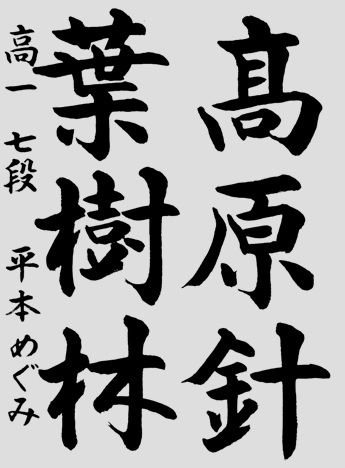 髙原針
葉樹林
高一 七段 平本めぐみ